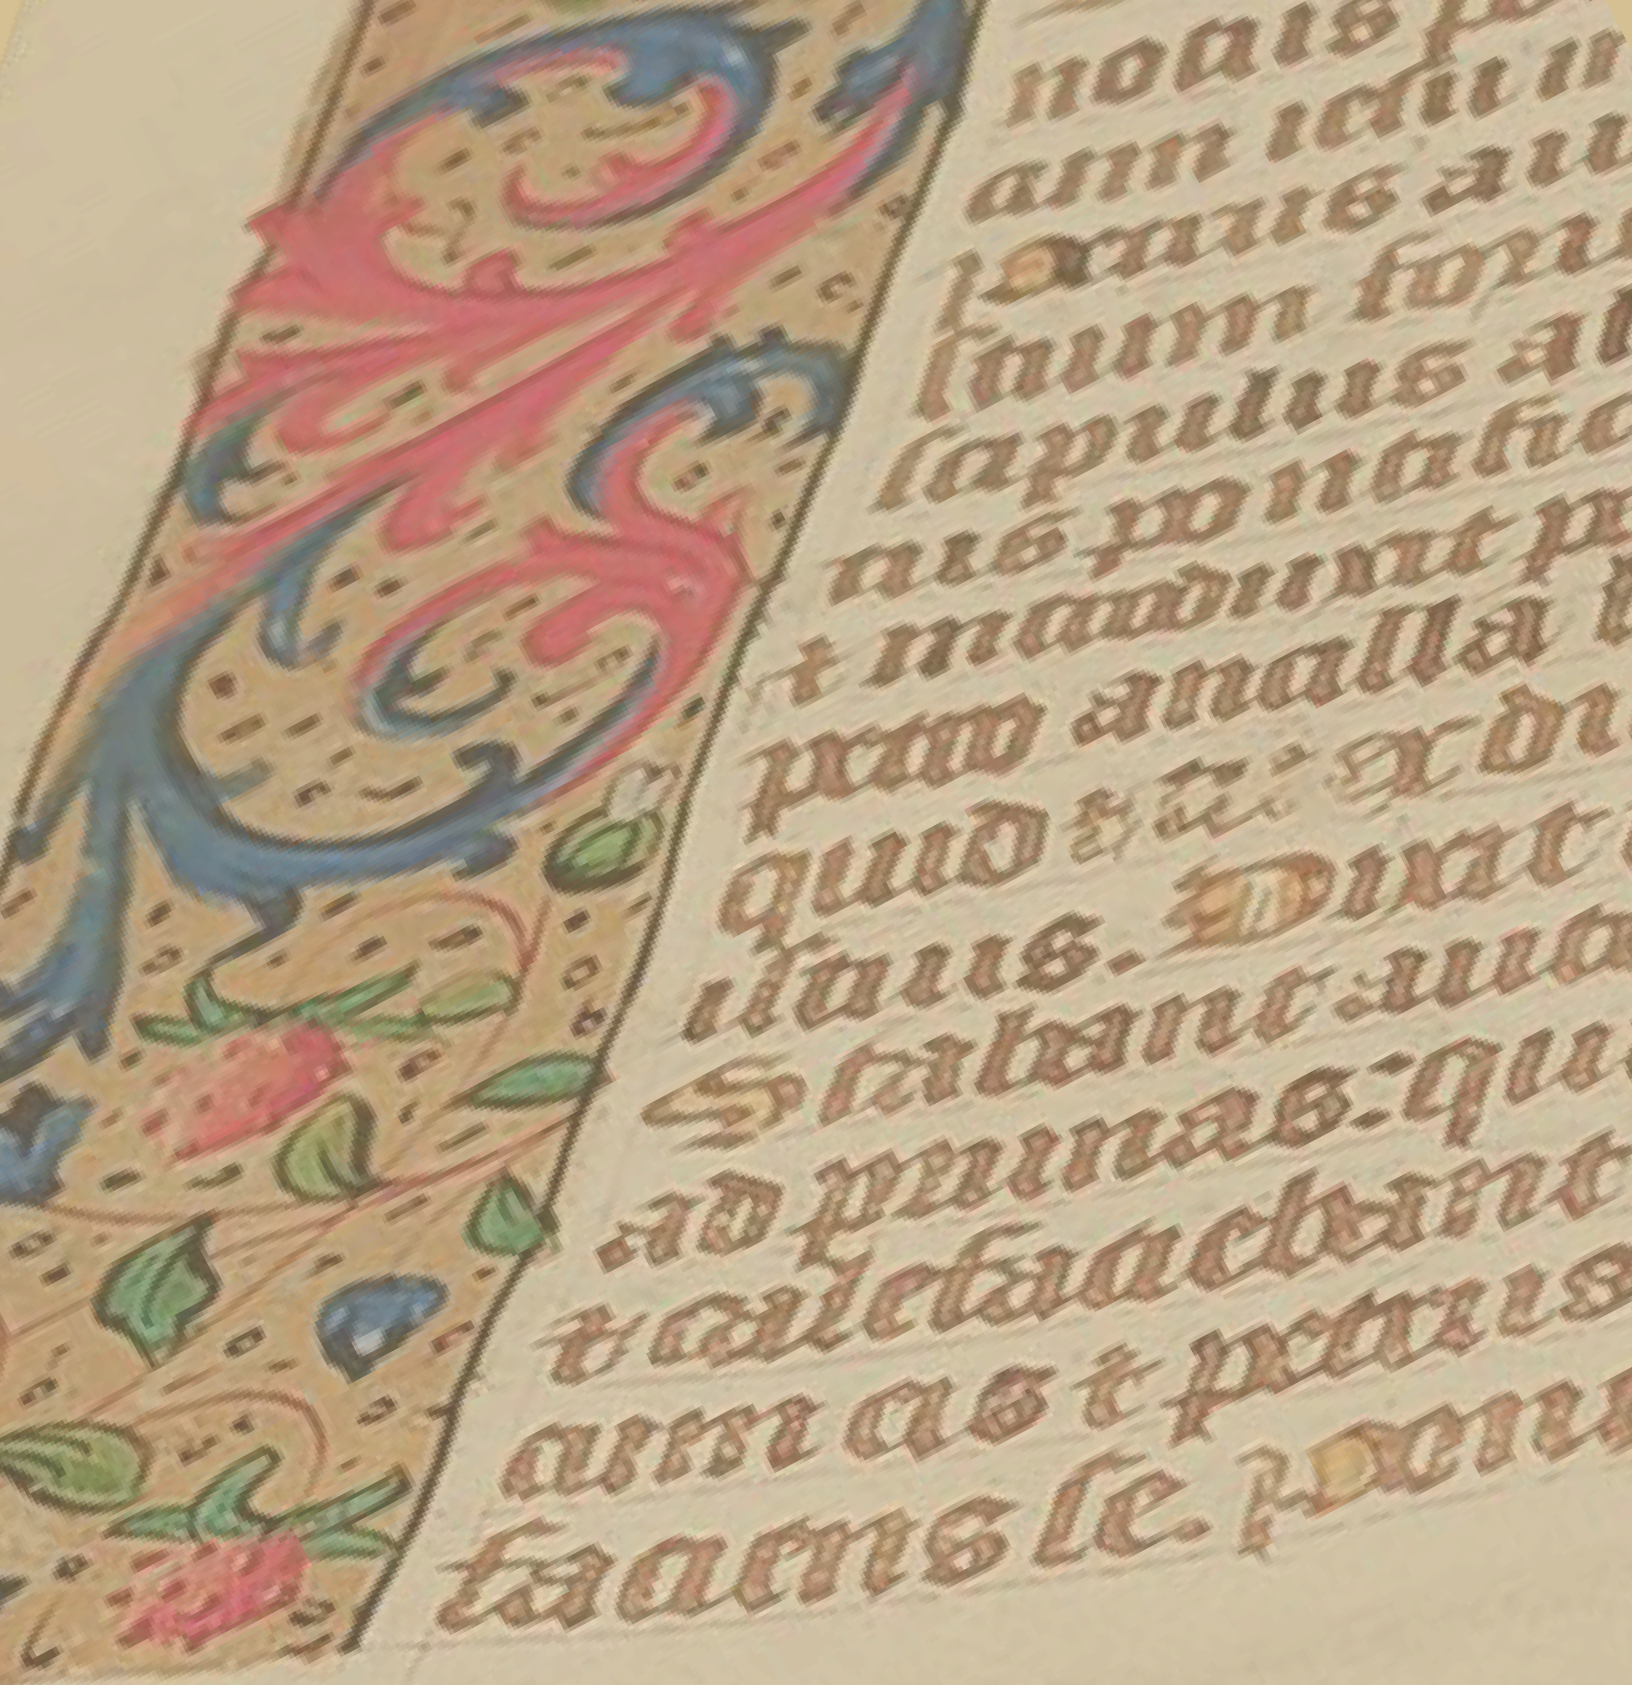 notus po
cum iesu in
Petrus au
stium foris
scipulus al
tus pontific
t introduxit p
petro ancilla
quid et tu ex di
istius. Dicit
Stabant aut
ad prunas: qu
t calefaciebant
cum eis et petrus
faciens se. Pont